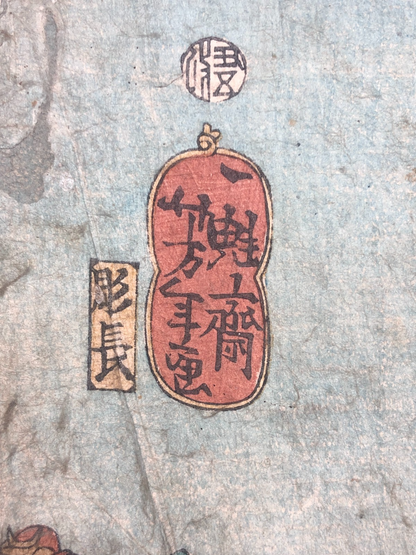 一魁斎
芳年画
彫長